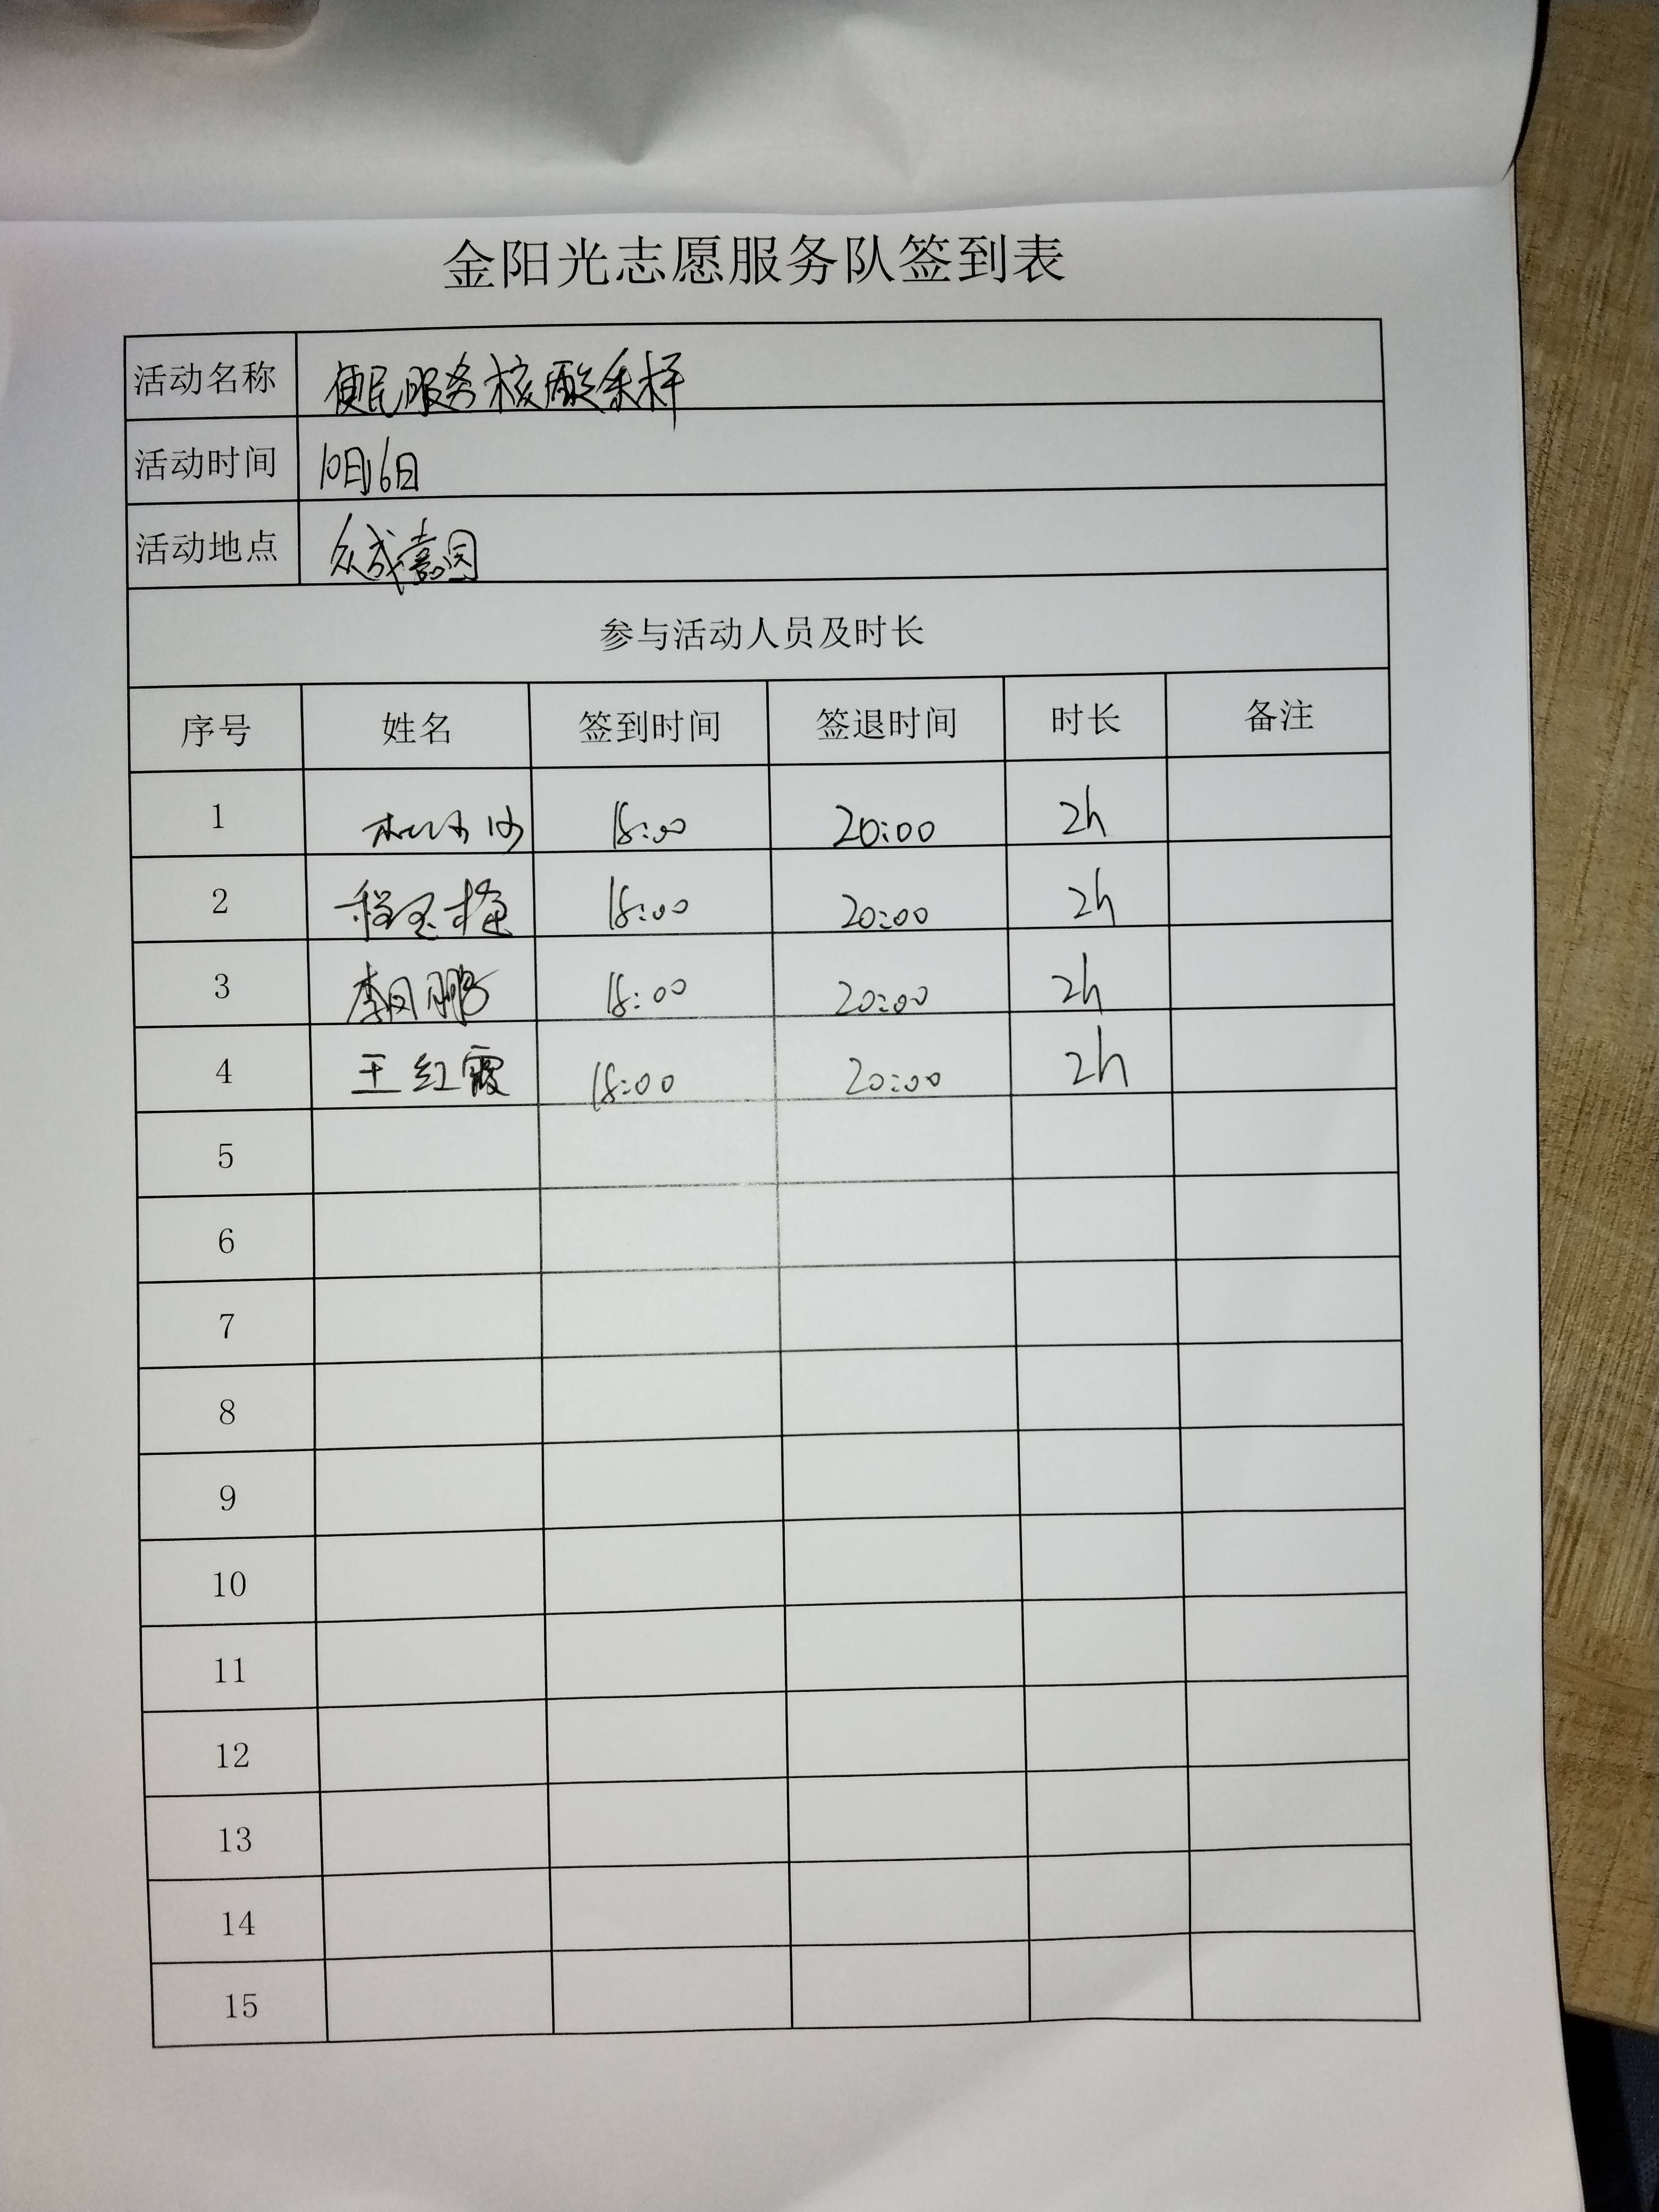 金阳光志愿服务队签到表
活动名称 便民服务核酸采样
活动时间 10月6日
活动地点 众成嘉园
参与活动人员及时长
序号 姓名 签到时间 签退时间 时长 备注
1 18:00 20:00 2h
2 18:00 20:00 2h
3 李凤鹏 18:00 20:00 2h
4 王红霞 18:00 20:00 2h
5
6
7
8
9
10
11
12
13
14
15